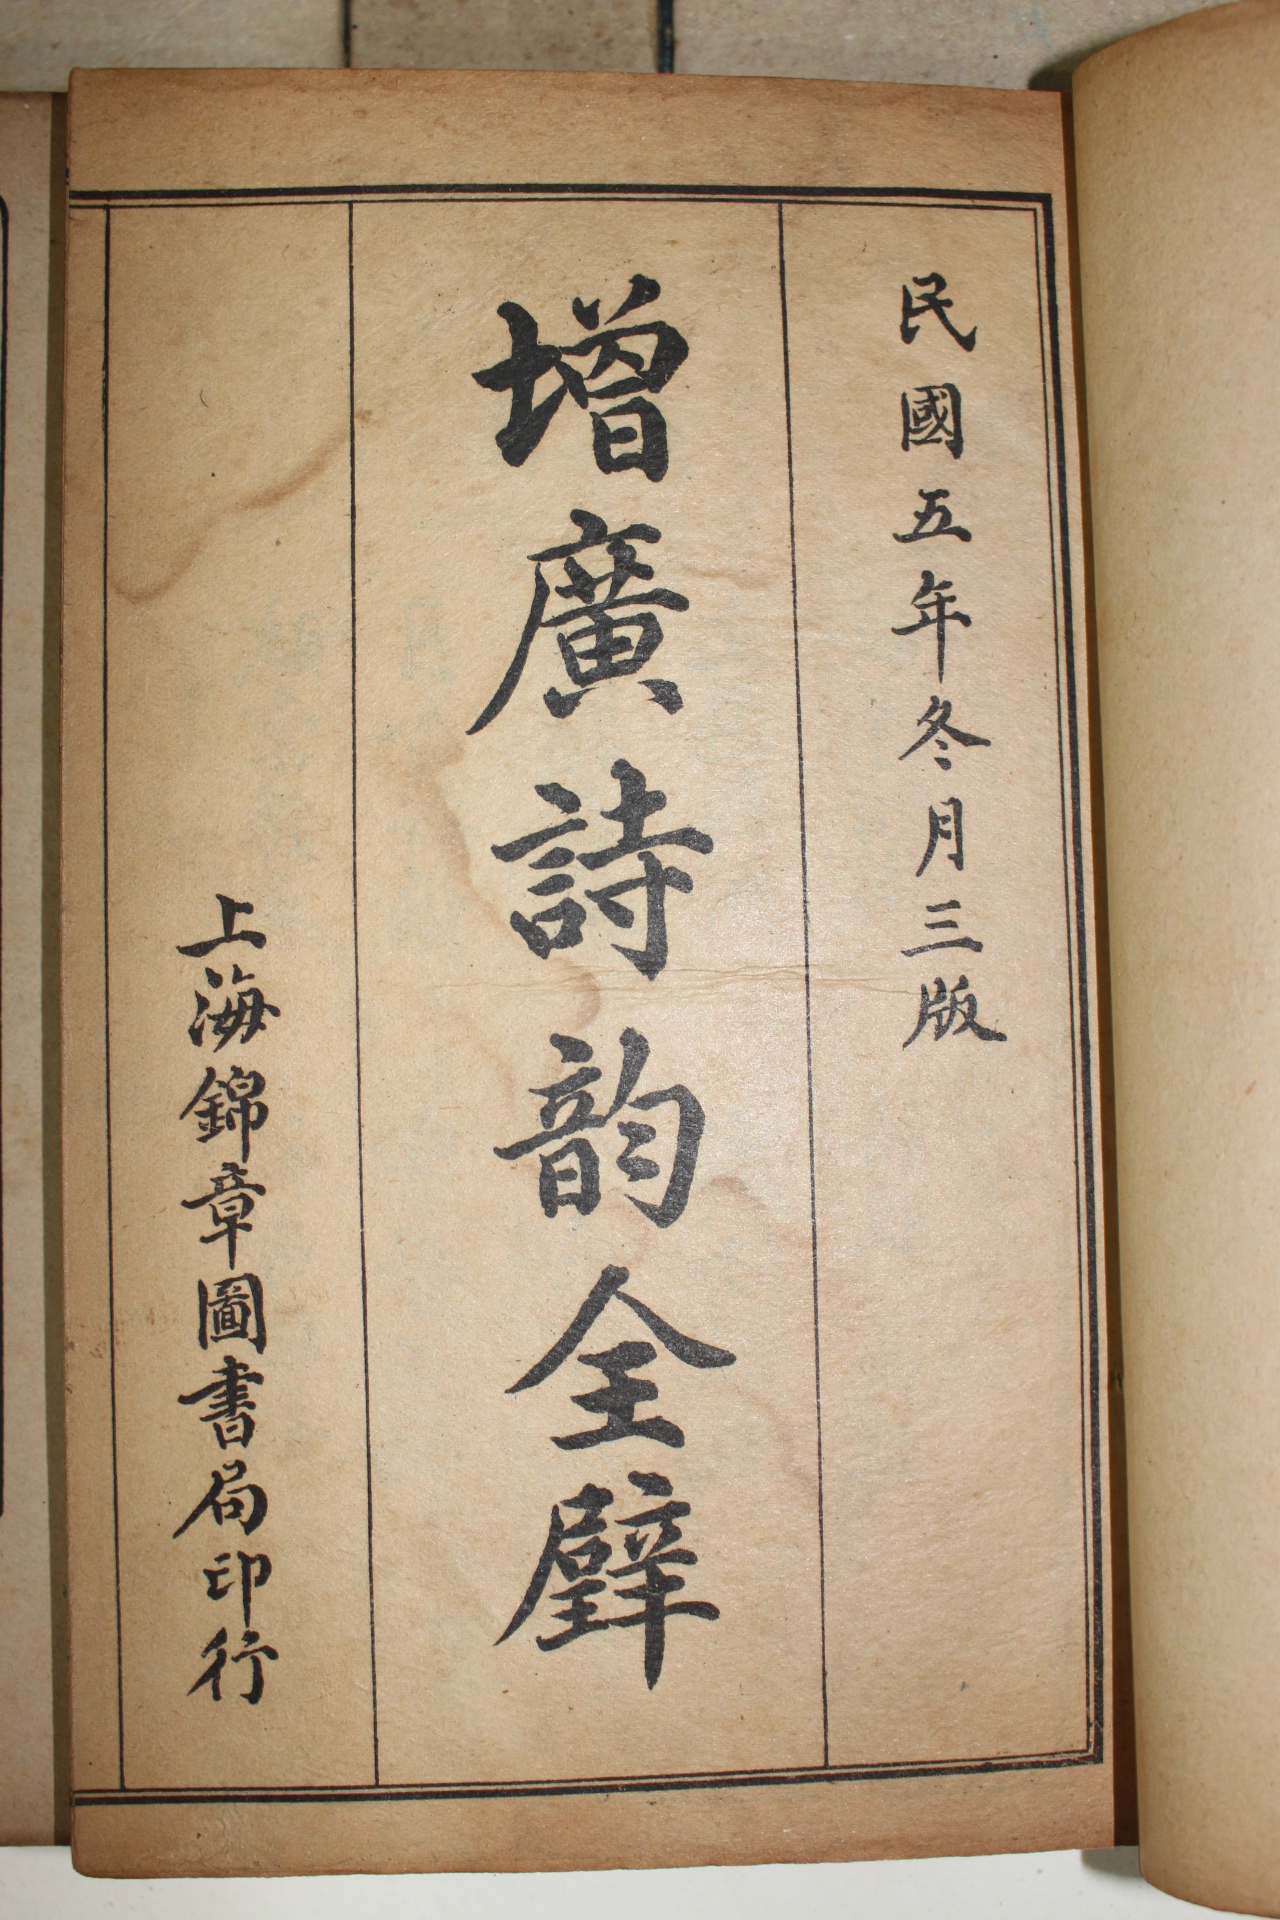 民國五年冬月三版
增廣詩韵全璧
上海錦章圖書局印行